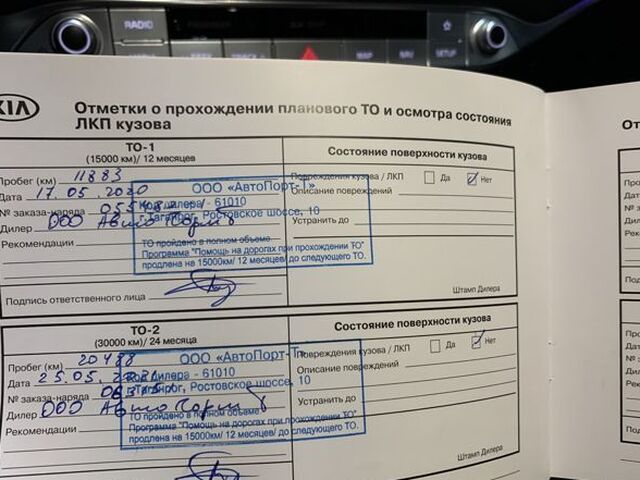 RADIO
MAP
NAV
SETUP
KIA
Отметки о прохождении планового ТО и осмотра состояния
ЛКП кузова
ТО-1
(15000 км)/ 12 месяцев
Состояние поверхности кузова
Пробег (км) 11883
Дата 17.05.2020
№ заказа-наряда
Дилер ООО
Рекомендации
Подпись ответственного лица
ООО «АвтоПорт-Т»
Код дилера - 61010
г.Таганрог, Ростовское шоссе, 10
ТО пройдено в полном объеме.
Программа "Помощь на дорогах при прохождении ТО"
продлена на 15000км/ 12 месяцев/ до следующего ТО.
Повреждения кузова / ЛКП Да Нет
Описание повреждений
Устранить до
Штамп Дилера
ТО-2
(30000 км)/ 24 месяца
Состояние поверхности кузова
Пробег (км) 20488
Дата 25.05.
№ заказа-наряда
Дилер ООО
Рекомендации
ООО «АвтоПорт-Т»
Код дилера - 61010
г.Таганрог, Ростовское шоссе, 10
ТО пройдено в полном объеме.
Программа "Помощь на дорогах при прохождении ТО"
продлена на 15000км/ 12 месяцев/ до следующего ТО.
Повреждения кузова / ЛКП Да Нет
Описание повреждений
Устранить до
Штамп Дилера
От
ЛКП
Пробег
Дата
№ зака
Дилер
Рекоме
Подпис
Пробег
Дата
№ зак
Дилер
Реком